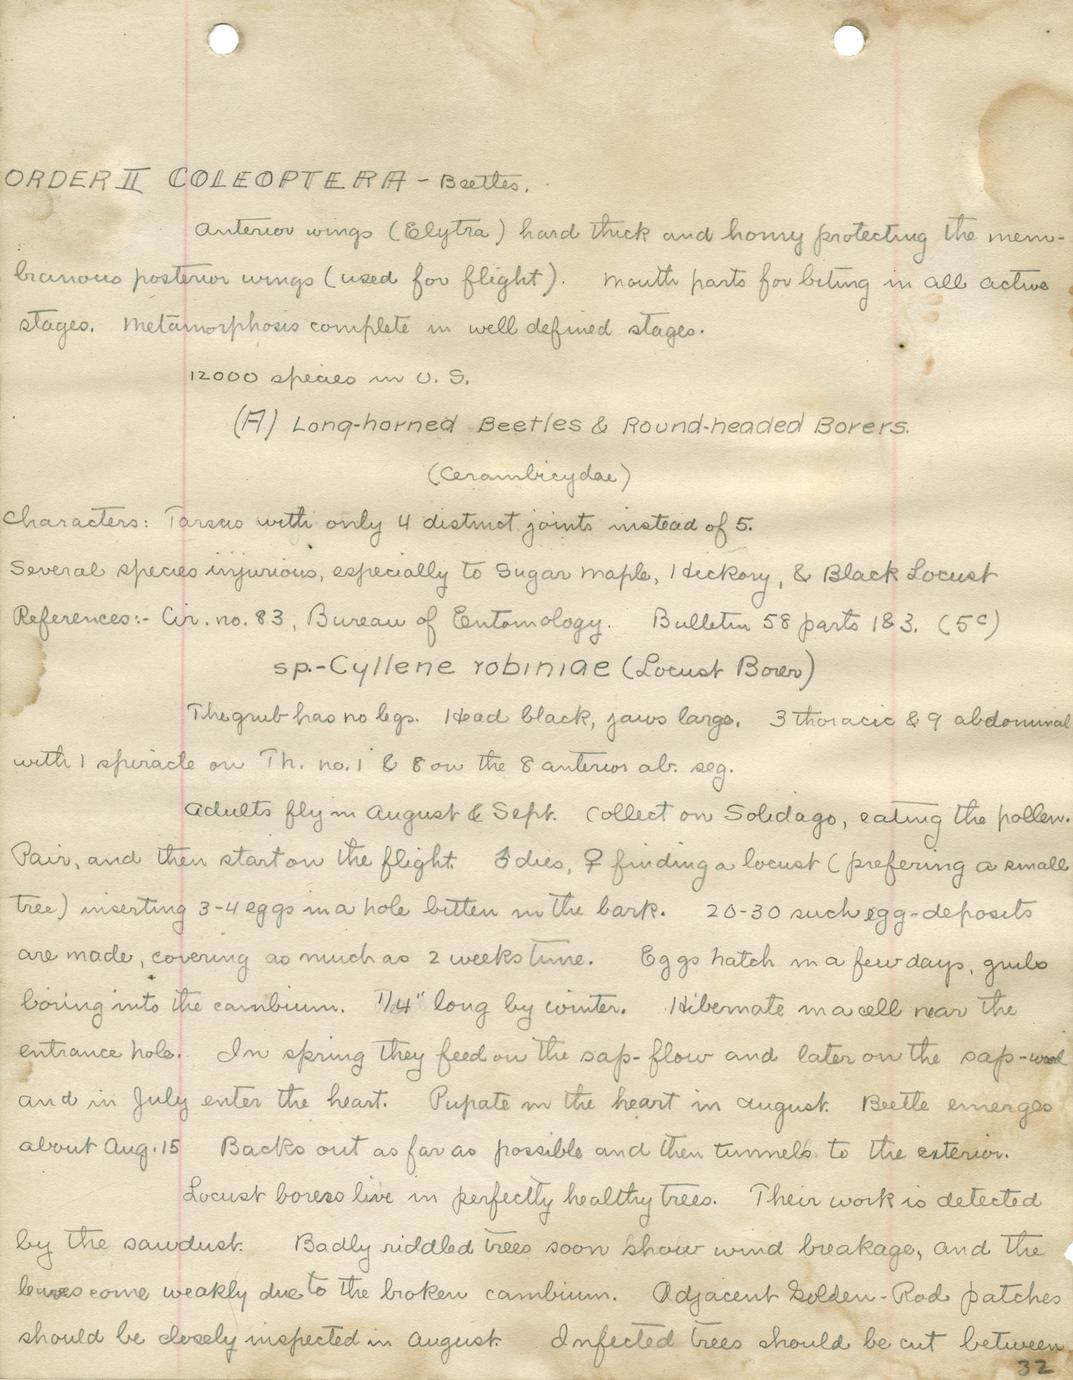 ORDER II COLEOPTERA - Beetles.
Anterior wings (Elytra) hard thick and horny protecting the mem-
branous posterior wings (used for flight). Mouth parts for biting in all active
stages. Metamorphosis complete in well defined stages.
12000 species in U. S.
(A) Long-horned Beetles & Round-headed Borers.
(Cerambicydae)
Characters: Tarsus with only 4 distinct joints instead of 5.
Several species injurious, especially to Sugar Maple, Hickory, & Black Locust
References:- Cir. no. 83, Bureau of Entomology. Bulletin 58 parts 1&3. (5c)
sp.-Cyllene robiniae (Locust Borer)
The grub has no legs. Head black, jaws large. 3 thoracic & 9 abdominal
with 1 spiracle on Th. no. 1 & 8 on the 8 anterior ab. seg.
Adults fly in August & Sept. Collect on Solidago, eating the pollen.
Pair, and then start on the flight. ♂ dies, ♀ finding a locust (prefering a small
tree) inserting 3-4 eggs in a hole bitten in the bark. 20-30 such egg-deposits
are made, covering as much as 2 weeks time. Eggs hatch in a few days, grubs
boring into the cambium. 1/4" long by winter. Hibernate in a cell near the
entrance hole. In spring they feed on the sap-flow and later on the sap-wood
and in July enter the heart. Pupate in the heart in August. Beetle emerges
about Aug. 15 Backs out as far as possible and then tunnels to the exterior.
Locust borers live in perfectly healthy trees. Their work is detected
by the sawdust. Badly riddled trees soon show wind breakage, and the
leaves come weakly due to the broken cambium. Adjacent Golden-Rod patches
should be closely inspected in August. Infected trees should be cut between
32